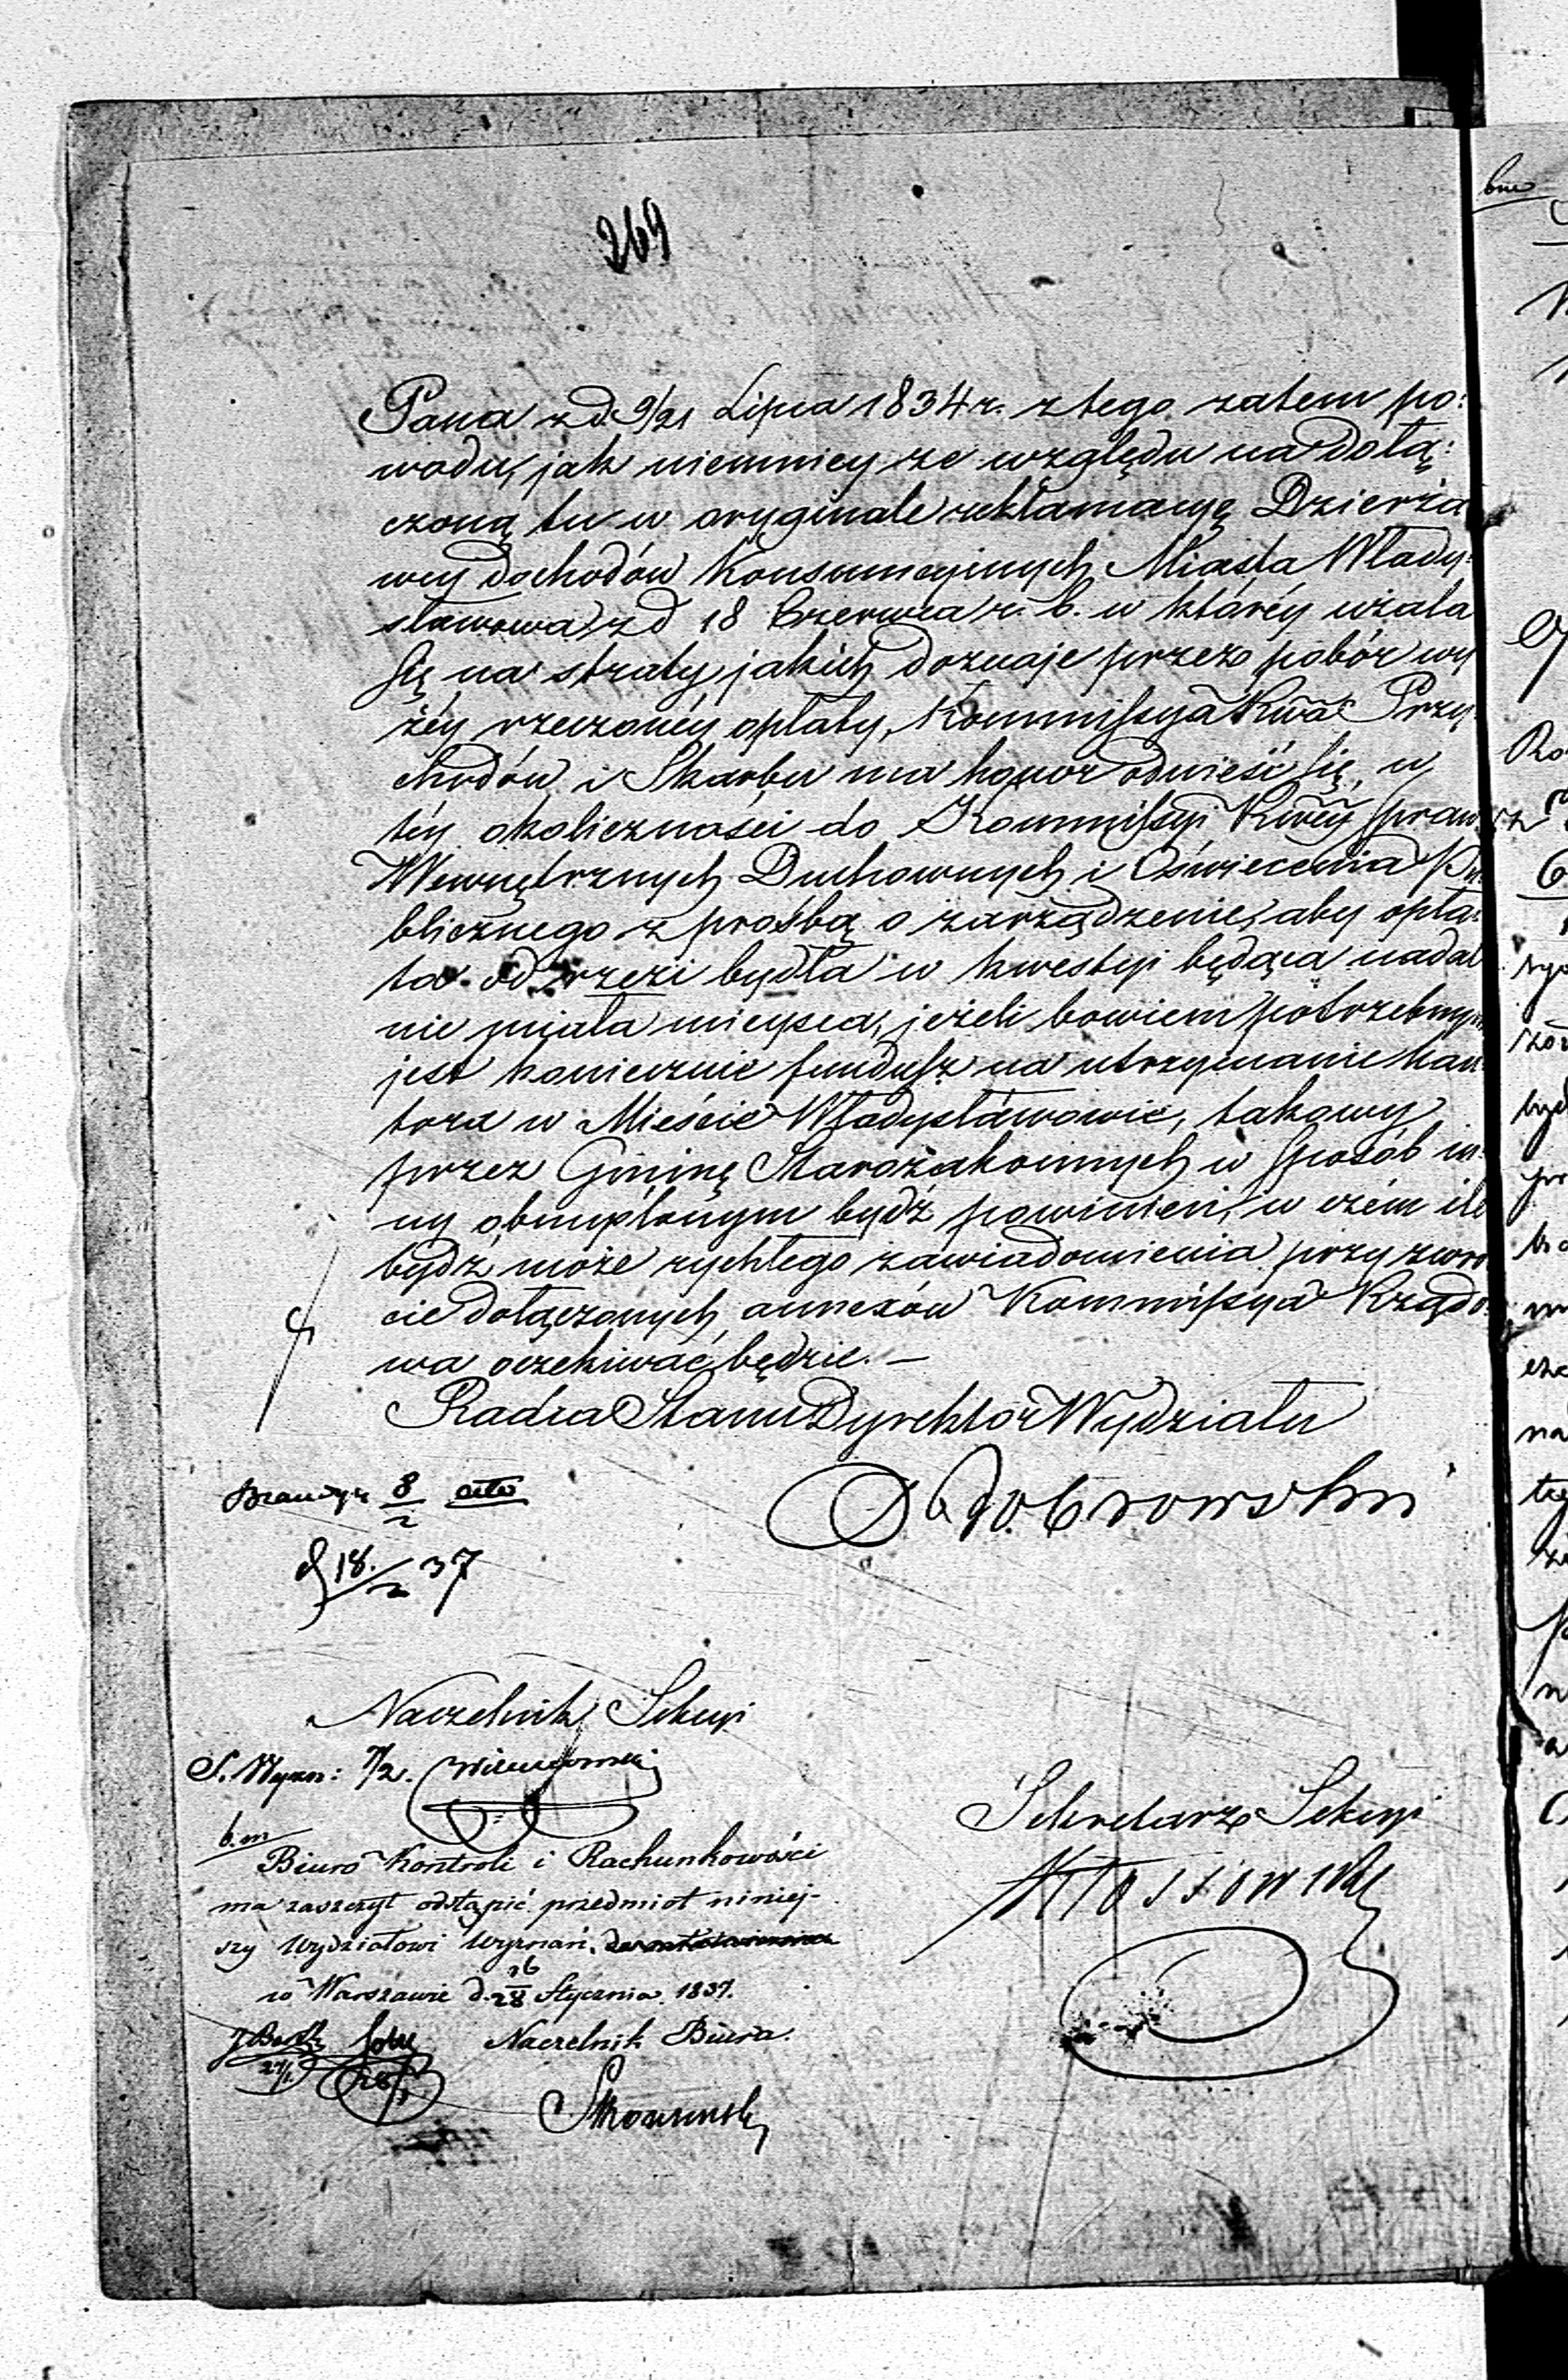 269
Pana z d. 9/21 Lipca 1834 r. z tego zatem po:
wodu, jak niemniey ze względu na dołą:
czoną tu w oryginale reklamacyę Dzierża
wcy dochodów Konsumcyinych Miasta Włady:
sławowa z d 18 Czerwca r. b. w któréy użala
się na straty jakich doznaje przez pobór wy
żéy rzeczonéy opłaty, Kommissya Rwa Przy
chodów i Skarbu ma honor odnieść się w
téy okoliczności do Kommissyi Rwéy spraw
Wewnętrznych Duchownych i Oświecenia Pu
blicznego z prośbą o zarządzenie, aby opła:
ta od rzezi bydła w kwestyi będąca nadal
nie miała mieysca, jeżeli bowiem potrzebnym
jest koniecznie fundusz na utrzymanie kan
tora w Mieście Władysławowie, takowy
przez Gminę Starozakonnych w sposób in:
ny obmyślonym bydź powinien, w czém ile
bydź może rychłego zawiadomienia przy zwro
cie dołączonych annexów Kommissya Rządo:
wa oczekiwać będzie. —
Radca Stanu Dyrektor Wydziału
8/2
18./2 37
Naczelnik Sekcyi
S. Wyzn: 7/2.
b. m
Biuro Kontroli i Rachunkowości
ma zaszczyt odstąpić przedmiot niniej-
szy Wydziałowi Wyznań.
w Warszawie d. 16/28 Stycznia 1837.
Naczelnik Biura.
27/1 28/1
Sekretarz Sekcyi